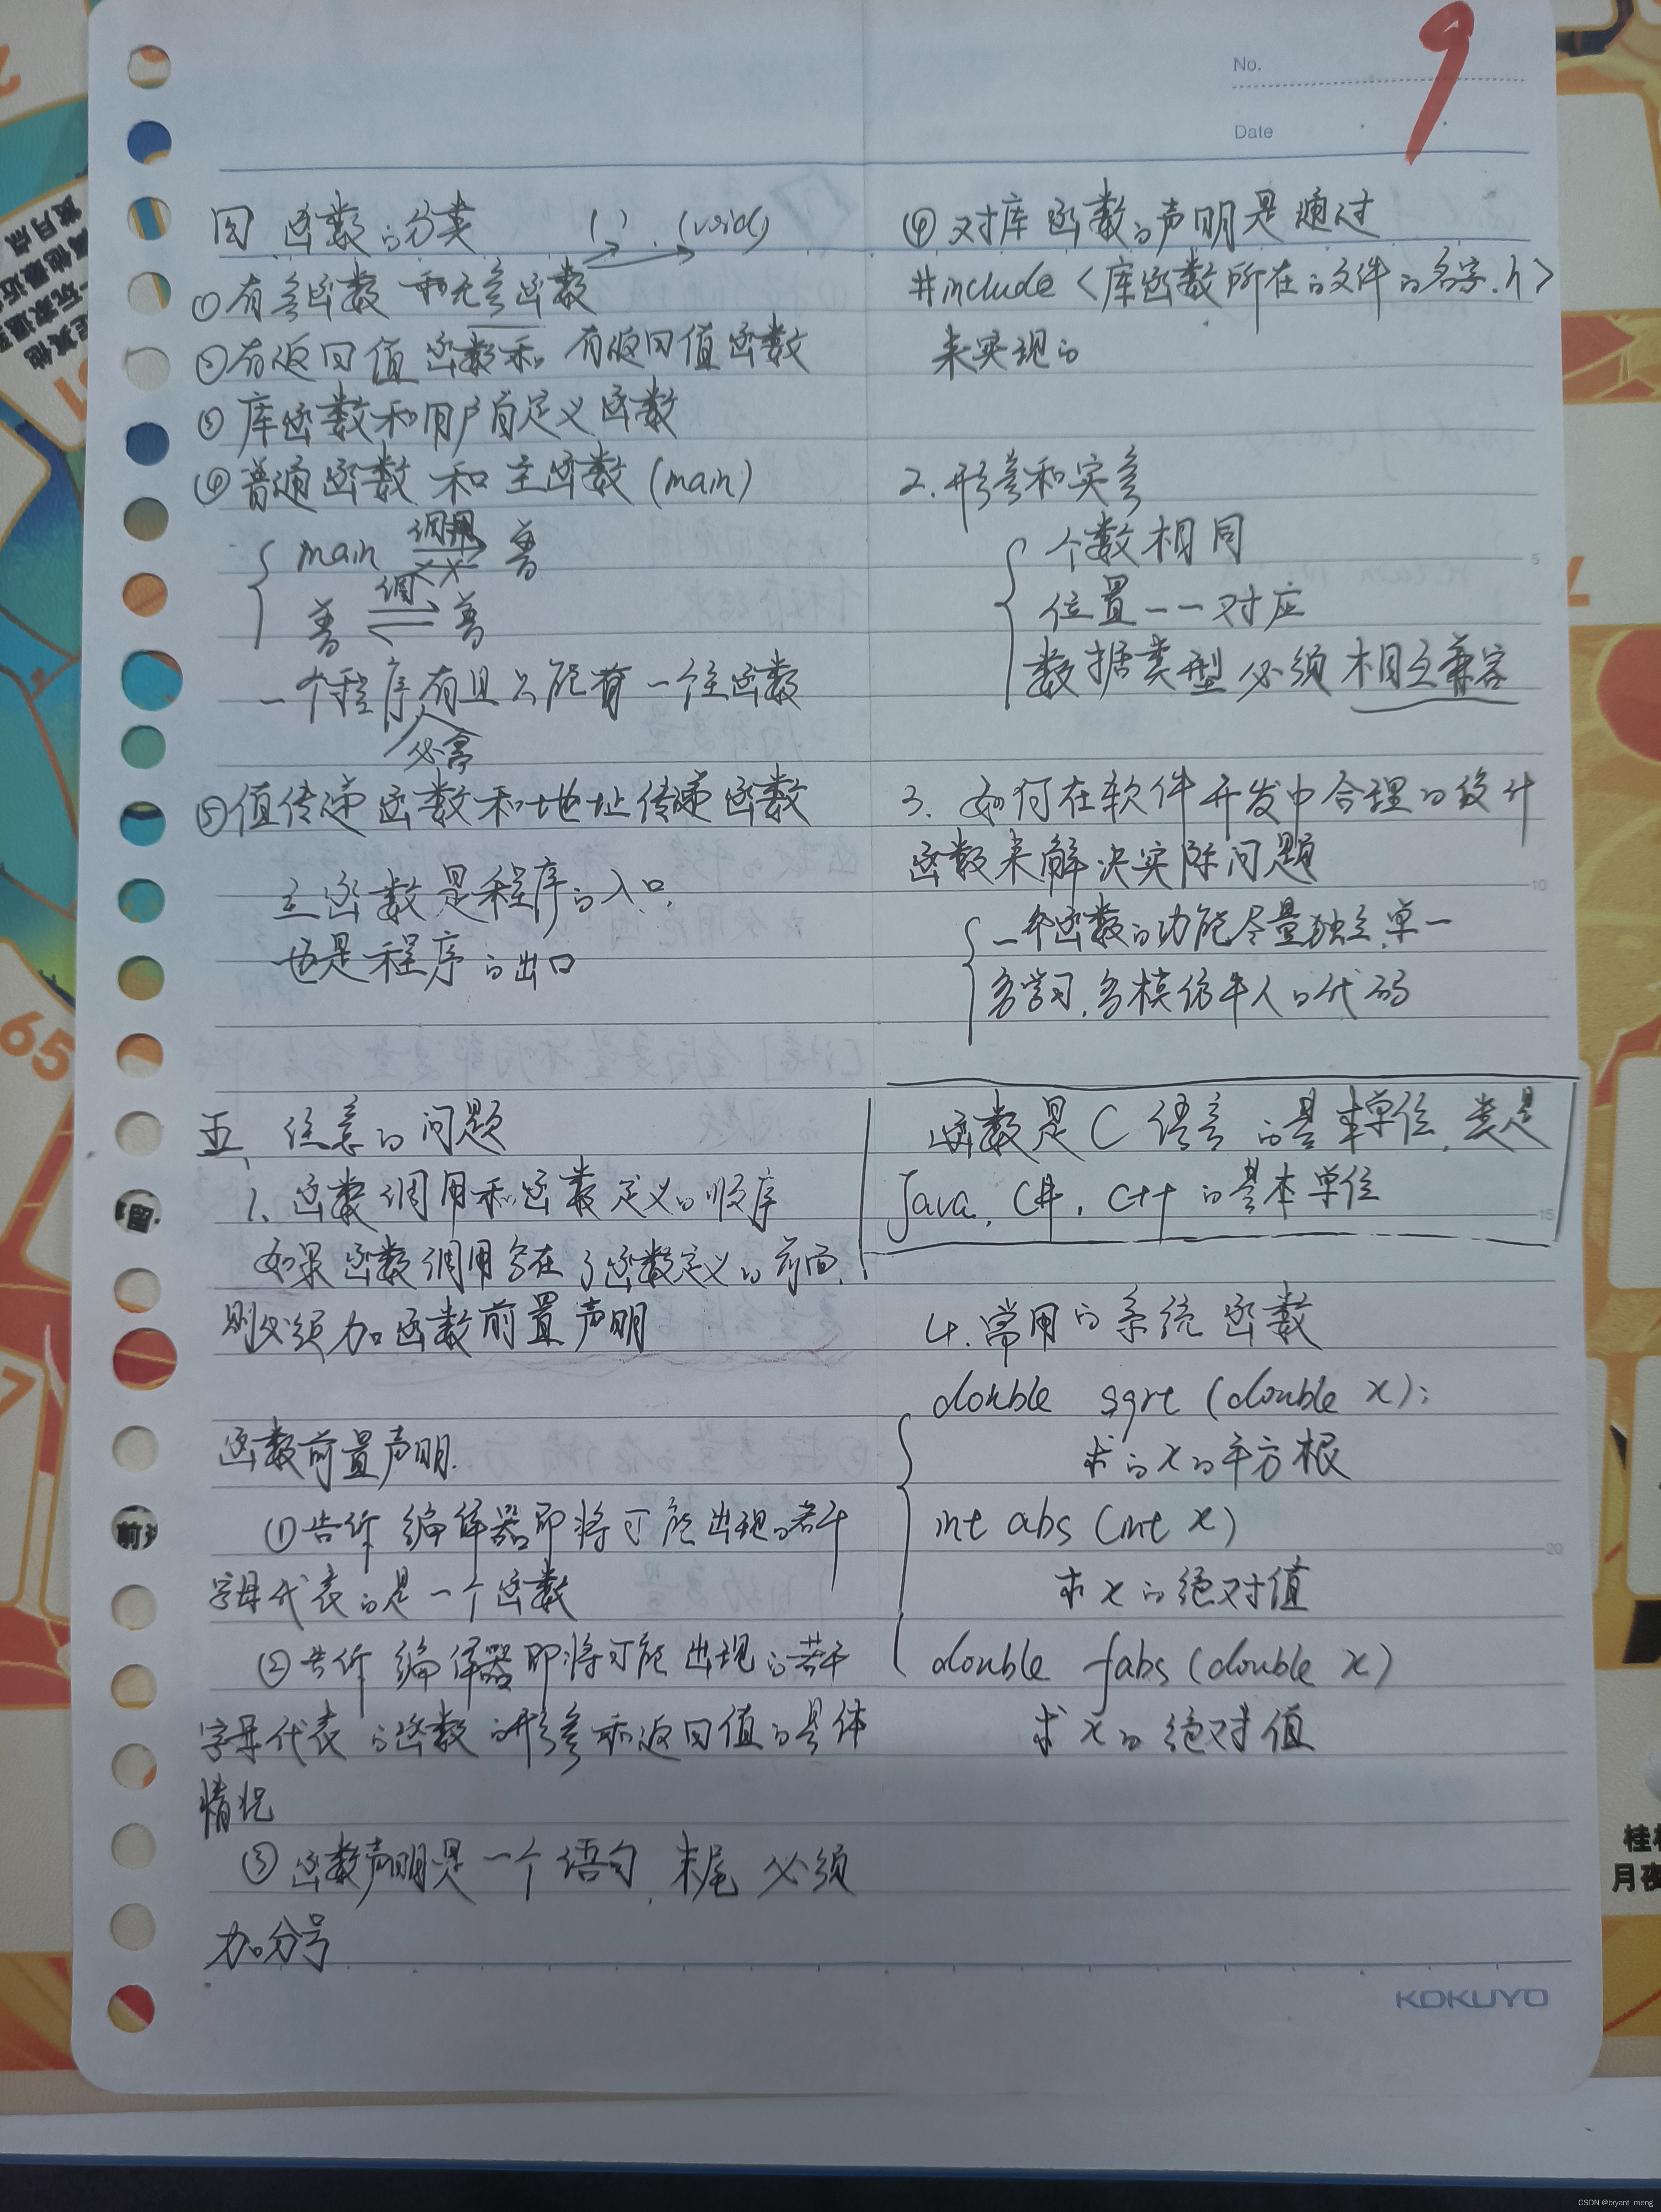 9
No.
Date
四 函数的分类 () . (void)
①有参函数 和无参函数
②有返回值 函数和 有返回值函数
③库函数和用户自定义函数
④普通函数 和 主函数 (main)
main 调用 普
××
普 调 普
一个程序有且只能有一个主函数
必需
⑤值传递函数和地址传递函数
主函数是程序的入口
也是程序的出口
五、注意的问题
1、函数调用和函数定义的顺序
如果函数调用写在了函数定义的前面,
则必须加函数前置声明
函数前置声明.
①告诉编译器即将可能出现的若干
字母代表的是一个函数
②告诉编译器即将可能出现的若干
字母代表的函数的形参和返回值的具体
情况
③函数声明是一个语句,末尾必须
加分号
④对库函数的声明是通过
#include <库函数所在的文件的名字.h>
来实现的
2.形参和实参
个数相同
位置一一对应
数据类型必须相互兼容
3. 如何在软件开发中合理的设计
函数来解决实际问题
一个函数的功能尽量独立,单一
多学习,多模仿牛人的代码
函数是C语言的基本单位,类是
Java, C#, C++的基本单位
4.常用的系统函数
double sqrt (double x);
求的x的平方根
int abs (int x)
求x的绝对值
double fabs (double x)
求x的绝对值
5
10
15
20
KOKUYO
65
7
留
前
桂
月夜
CSDN @bryant_meng